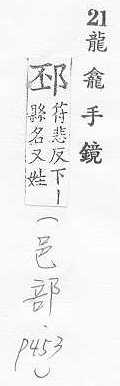 21 龍龕手鏡
邳 符悲反下丨
縣名又姓
(邑部.p453)